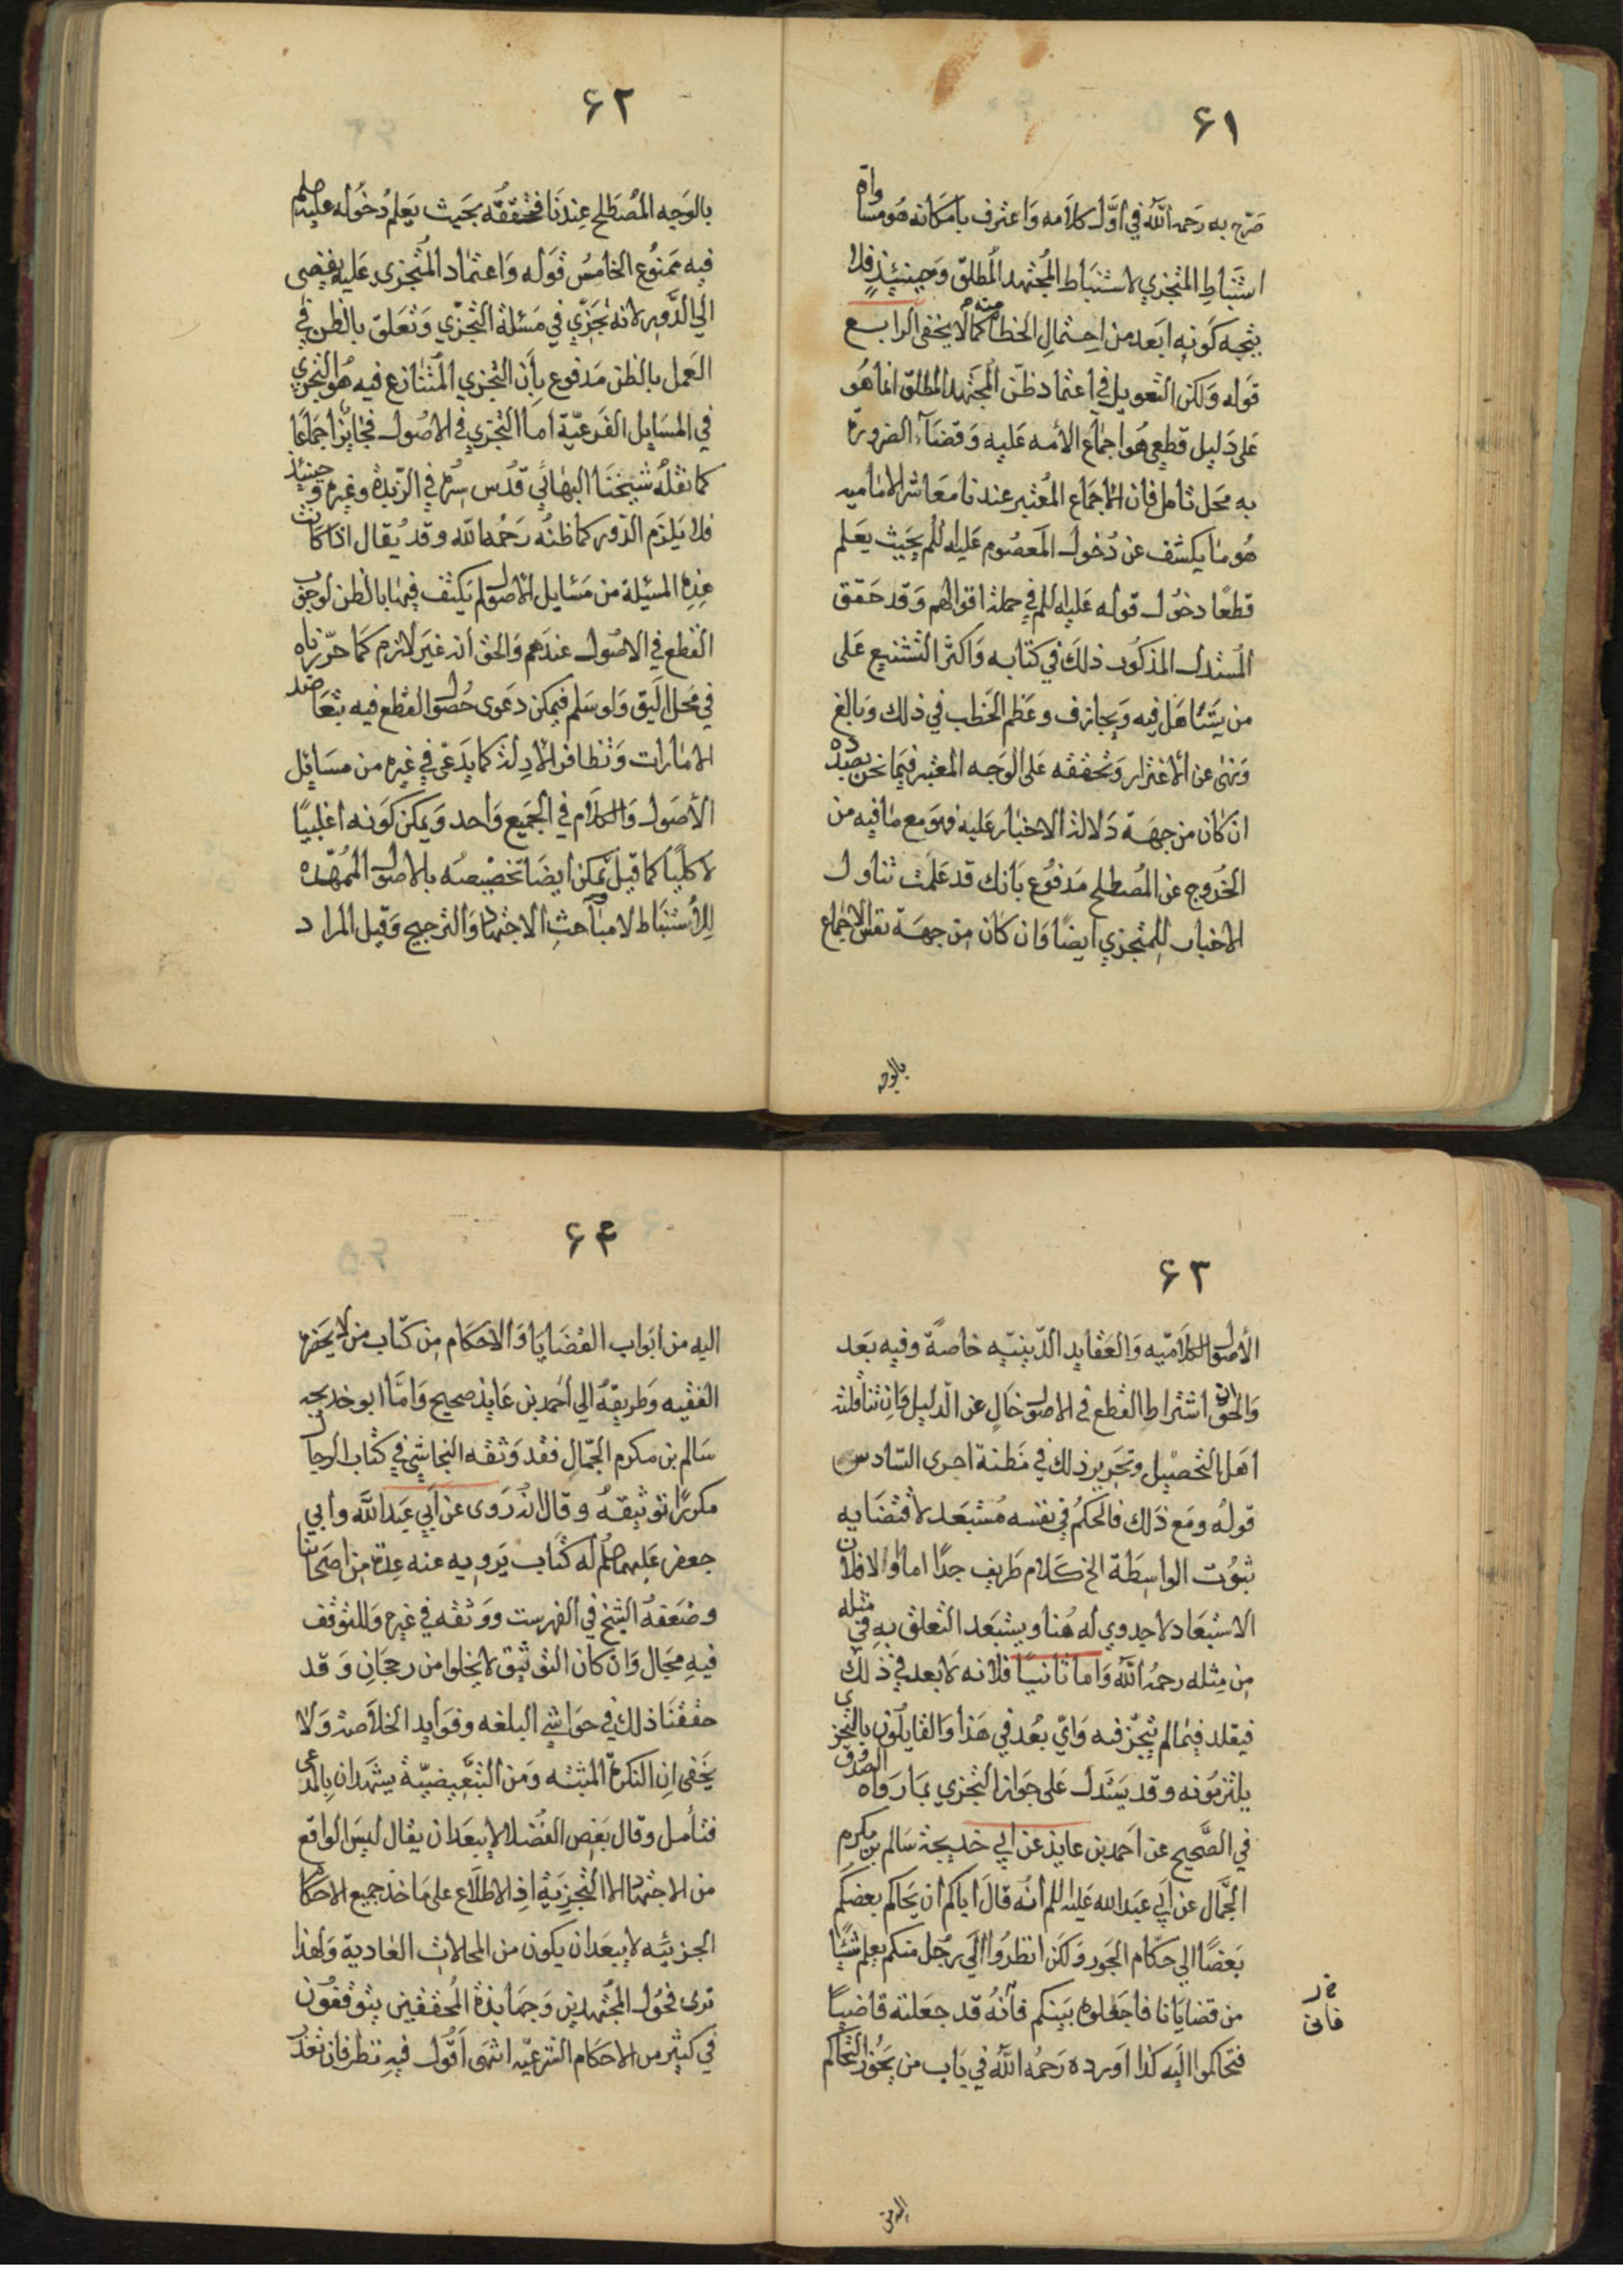 ۶۱
صرح به رحمه الله في اول كلامه واعترف بامكانه هو مساواة
استنباط المتجزي لاستنباط المجتهد المطلق وحينئذ فلا
يتجه كونه ابعد من احتمال الخطأ منه كما لا يخفى الرابع
قوله ولكن التعويل في اعتماد ظن المجتهد المطلق انما هو
على دليل قطعي هو اجماع الأمه عليه وقضآء الضرورة
به محل تامل فان الاجماع المعتبر عندنا معاشر الاماميه
هو ما يكشف عن دخول المعصوم عليه السلم بحيث يعلم
قطعًا دخول قوله عليه السلم في جملة اقوالهم وقد حقق
المستدل المذكور ذلك في كتابه واكثر التشنيع على
من يتساهل فيه ويجازف وعظم الخطب في ذلك وبالغ
ونهى عن الاغترار وتحققه على الوجه المعتبر فيما نحن بصدده
ان كان من جهة دلالة الاخبار عليه فهو مع ما فيه من
الخروج عن المصطلح مدفوع بانك قد علمت تناول
الاخبار للمتجزي ايضًا وان كان من جهة نفس الاجماع
بالوجه
۶۲
بالوجه المصطلح عندنا فتحققه بحيث يعلم دخوله عليه السلم
فيه ممنوع الخامس قوله واعتماد المتجزي عليه يفضي
الي الدور لانه تجزي في مسئلة التجزي وتعلق بالظن في
العمل بالظن مدفوع بان التجزي المتنازع فيه هو التجزي
في المسايل الفرعيّة اما التجزي في الاصول فجايز اجماعا
كما نقله شيخنا البهائي قدس سره في الزبدة وغيره وحينئذ
فلا يلزم الدور كما ظنه رحمه الله وقد يقال اذا كانت
هذه المسئلة من مسايل الاصول لم يكتف فيها بالظن لوجوب
القطع في الاصول عندهم والحق انه غير لازم كما حررناه
في محل اليق ولو سلم فيمكن دعوى حصول القطع فيه بتعاضد
الامارات وتظافر الادلة كما يدعى في غيره من مسايل
الأصول والكلام في الجميع واحد ويمكن كونه اغلبيًا
لا كليًا كما قيل ويمكن ايضا تخصيصه بالاصول الممهده
للاستنباط لا مباحث الاجتهاد والترجيح وقيل المراد
۶۳
الأصول الكلاميّه والعقايد الدّينيّه خاصّة وفيه بعد
والحق ان اشتراط القطع في الاصول خالٍ عن الدليل وان تناقلته
اهل التحصيل وتحرير ذلك في مظنة اخرى السّادس
قوله ومع ذلك فالحكم في نفسه مستبعد لاقتضايه
ثبوت الواسطة الخ كلام طريف جدًا اما اولا فلان
الاستبعاد لا جدوي له هنا ويستبعد التعلق به في مثله
من مثله رحمه الله واما ثانيًا فلانه لا بعد في ذلك
فيقلد فيما لم يتجز فيه واي بعد في هذا والقايلون بالتجزي
يلتزمونه وقد يستدل على جواز التجزي بما رواه الصدوق
في الصّحيح عن احمد بن عايذ عن ابي خديجة سالم بن مكرم
الجمّال عن ابي عبد الله عليه السلم انه قال اياكم ان يحاكم بعضكم
بعضًا الي حكّام الجور ولكن انظروا الي رجل منكم يعلم شيئًا
من قضايانا فاجعلوه بينكم فانّه قد جعلته قاضيًا
فتحاكموا اليه كذا اورده رحمه الله في باب من يجوز التحاكم
فانى
اليه من
۶۴
اليه من ابواب القضايا والاحكام من كتاب من لا يحضره
الفقيه وطريقه الي احمد بن عايذ صحيح وامّا ابو خديجه
سالم بن مكرم الجمّال فقد وثقه النجاشي في كتاب الرجال
مكررًا توثيقه وقال انه روى عن ابي عبد الله وابي
جعفر عليهما السلم له كتاب يرويه عنه عدة من اصحابنا
وضعفه الشيخ في الفهرست ووثقه في غيره وللتوقف
فيه مجال وان كان التوثيق لا يخلوا من رجحان وقد
حققنا ذلك في حواشي البلغه وفوايد الخلاصة ولا
يخفى ان النكرة المثبته ومن التبعيضيّة يشهدان بالمدعى
فتأمل وقال بعض الفضلا لا يبعد ان يقال ليس الواقع
من الاجتهاد الا التجزية اذ الاطلاع على ماخذ جميع الاحكام
الجزئيّه لا يبعد ان يكون من المحالات العادية ولهذا
ترى فحول المجتهدين وجهابذة المحققين يتوقفون
في كثير من الاحكام الشرعيّه انتهى اقول فيه نظر فان تعذر